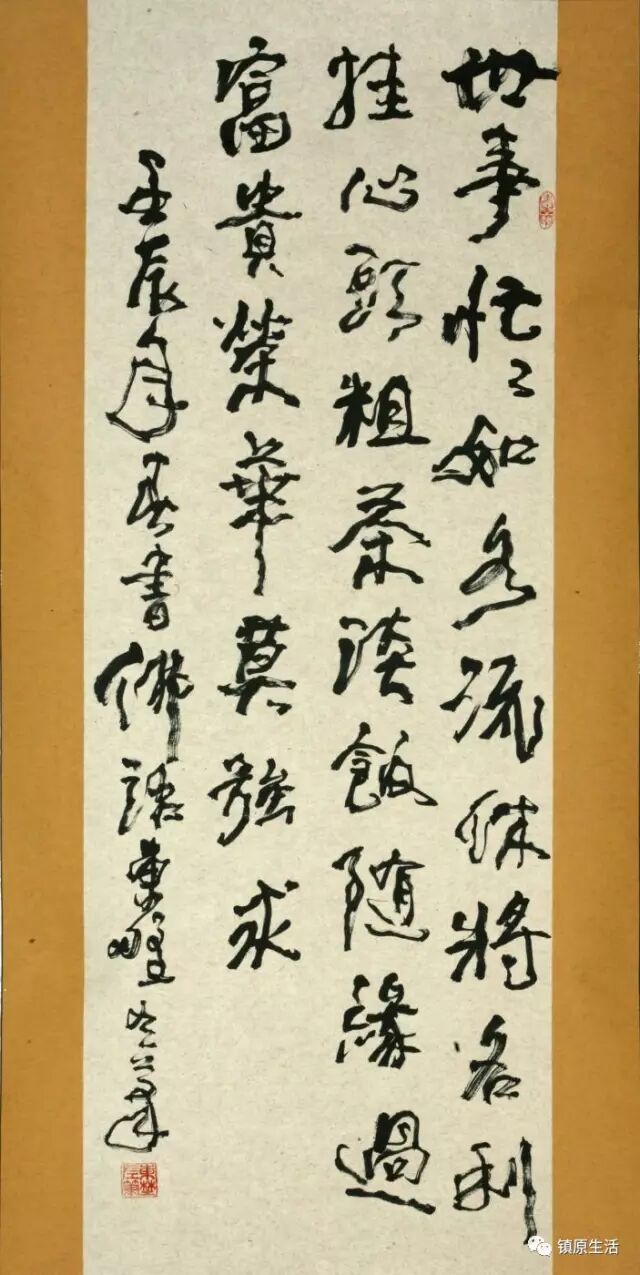 世事忙々如水流休将名利
挂心頭粗茶淡飯随緣過
富貴榮華莫強求
壬辰年春書佛語
镇原生活